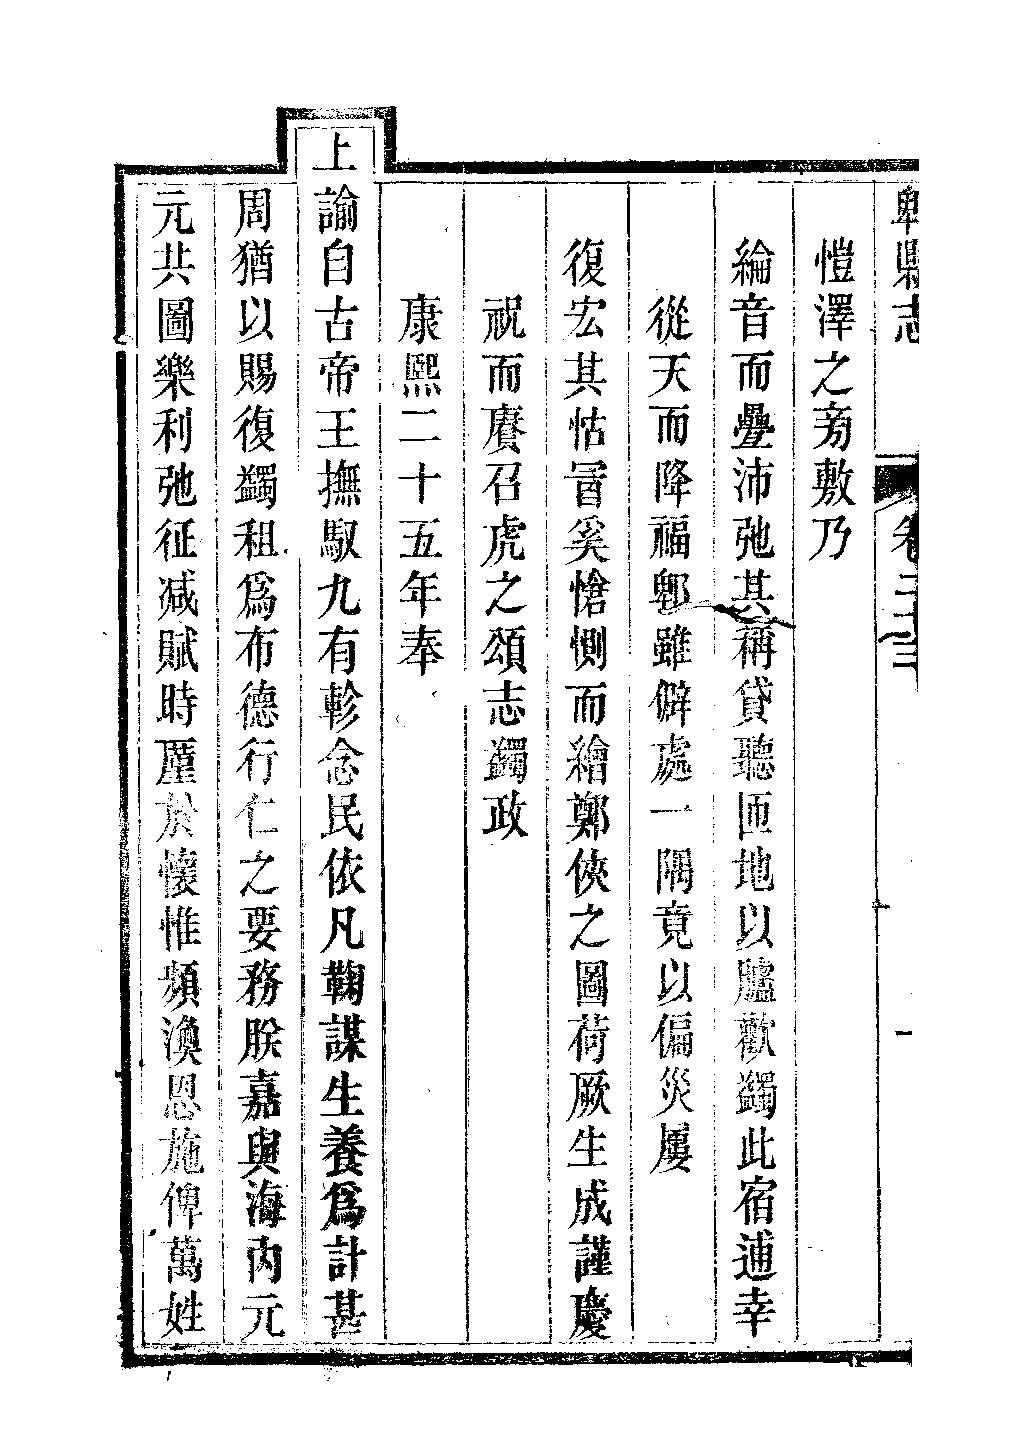 郫縣志
卷二十三
一
愷澤之旁敷乃
綸音而疊沛弛其稱貸聽匝地以臚歡蠲此宿逋幸
從天而降福郫雖僻處一隅竟以偏災屢
復宏其怙冒奚愴惻而繪鄭俠之圖荷厥生成謹慶
祝而賡召虎之頌志蠲政
康熙二十五年奉
上諭自古帝王撫馭九有軫念民依凡鞠謀生養爲計甚
周猶以賜復蠲租爲布德行仁之要務朕嘉與海内元
元共圖樂利弛征减賦時厪於懷惟頻渙恩施俾萬姓